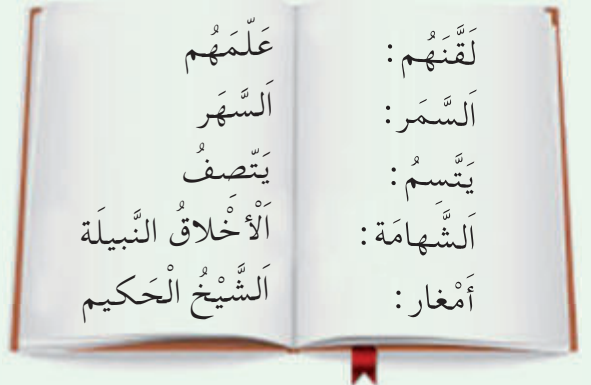 لَقَّنَهُم: عَلّمَهُم
اَلسَّمَر: اَلسَّهَر
يَتَّسِمُ: يَتّصِفُ
اَلشَّهامَة: اَلْأخْلاقُ النَّبيلَة
أَمْغار: اَلشَّيْخُ الْحَكيم